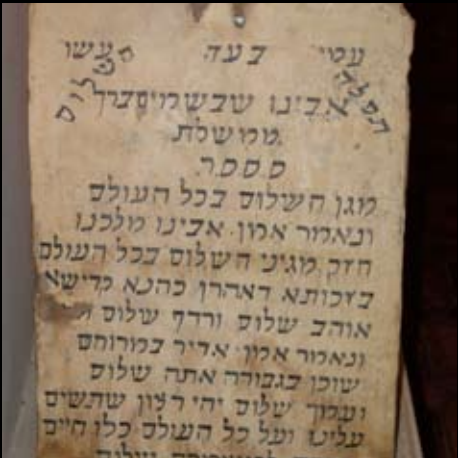 עמי בעה עעשו
תפלה השלום
אבינו שבשמים ברך
ממשלת
ססס״ר
מגן השלום בכל העולם
ונאמר אמן אבינו מלכנו
חזק מגיני השלום בכל העולם
בזכותא דאהרן כהנא קדישא
אוהב שלום ורדף שלום
ונאמר אמן אדיר במרומים
שוכן בגבורה אתה שלום
וערוך שלום יהי רצון שתשים
עלינו ועל כל העולם כלו חיים